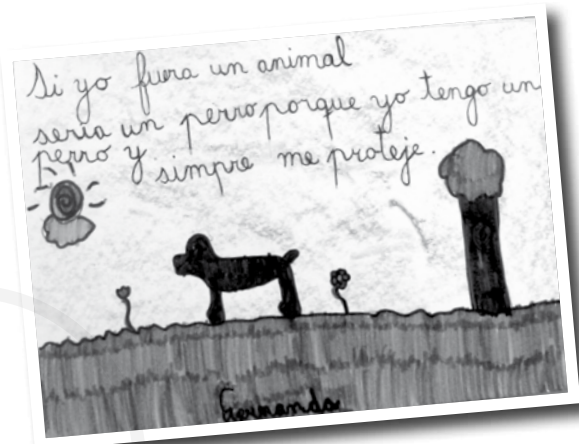 Si yo fuera un animal
seria un perro porque yo tengo un
perro y simpre me proteje.
Fernanda